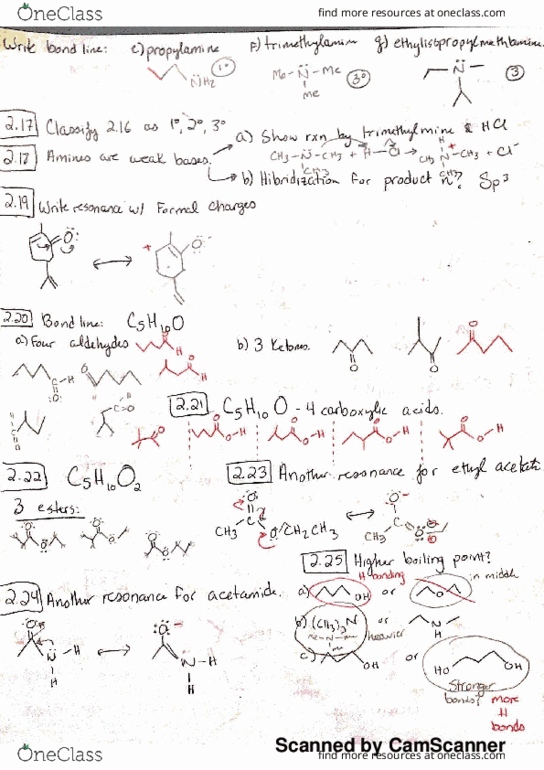 OneClass
find more resources at oneclass.com
Write bond line: e) propylamine f) trimethylamin g) ethylisopropylmethlamine.
NH₂ 1°
Me-N-Me 3°
Me
N 3
2.17 Classify 2.16 as 1°, 2°, 3°
a) Show rxn by trimethylmine & HCl
2.17 Amines are weak bases.
CH₃-N-CH₃ + H-Cl → CH₃ N-CH₃ + Cl⁻
CH₃ CH₃
b) Hibridization for product n? Sp³
2.19 Write resonance w/ Formal Charges
2.20 Bond line: C5H10O
a) Four aldehydes b) 3 Ketones.
2.21 C5H10O - 4 carboxylic acids.
2.22 C5H10O2
2.23 Another resonance for ethyl acetate
3 esters:
CH3 C O CH2CH3
CH3
2.25 Higher boiling point?
H bonding
in middle
2.24 Another resonance for acetamide.
a) OH or O
b) (CH3)3N or
Me-N-Me heavier N
Me H
c) OH or HO OH
N-H
H
N-H
H
Stronger bonds?
more
H
bonds
Scanned by CamScanner
OneClass
find more resources at oneclass.com